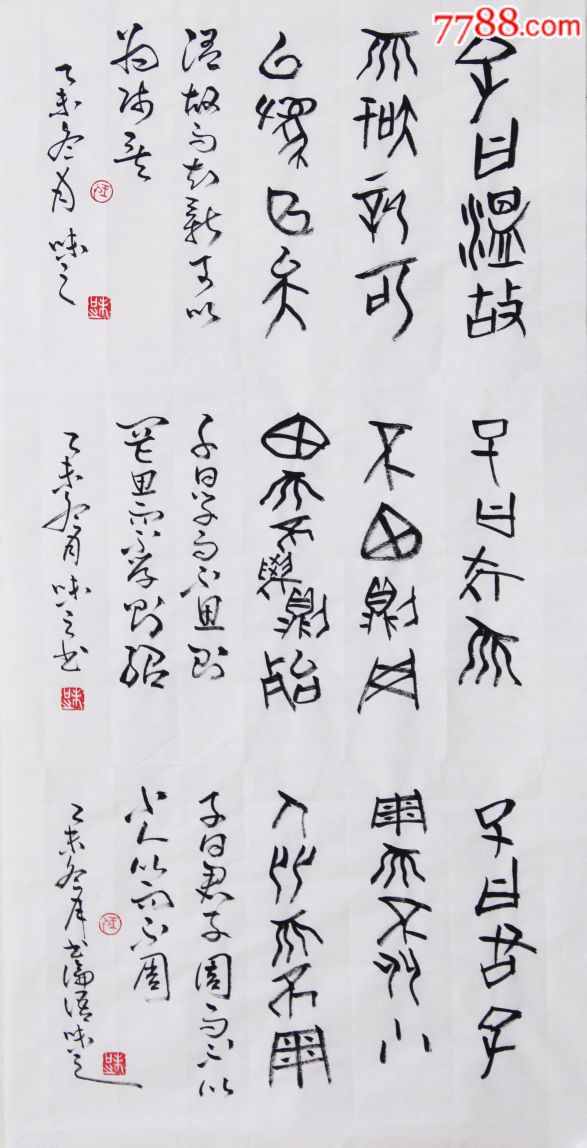 7788.com
子曰溫故
而智新可
以為師矣
溫故而知新可以
為師矣
乙未冬月 味之
子曰學而
不思則罔
思而不學則殆
子曰学而不思則
罔思而不学則殆
乙未冬月味之书
子曰君子
周而不比小
人比而不周
子曰君子周而不比
小人比而不周
乙未冬月书論語味之